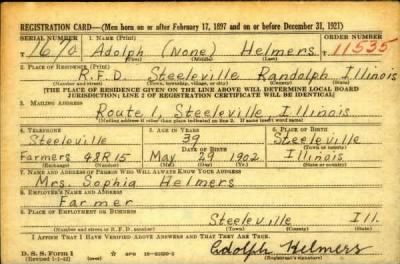 REGISTRATION CARD—(Men born on or after February 17, 1897 and on or before December 31, 1921)
SERIAL NUMBER 1. NAME (Print) ORDER NUMBER
T 1670 Adolph (None) Helmers T 11535
(First) (Middle) (Last)
2. PLACE OF RESIDENCE (Print)
R.F.D. Steeleville Randolph Illinois
(Number and street) (Town, township, village, or city) (County) (State)
[THE PLACE OF RESIDENCE GIVEN ON THE LINE ABOVE WILL DETERMINE LOCAL BOARD
JURISDICTION; LINE 2 OF REGISTRATION CERTIFICATE WILL BE IDENTICAL]
3. MAILING ADDRESS
Route Steeleville Illinois
(Mailing address if other than place indicated on line 2. If same insert word same)
4. TELEPHONE 5. AGE IN YEARS 6. PLACE OF BIRTH
Steeleville 39 Steeleville
DATE OF BIRTH (Town or county)
Farmers 98R15 May 29 1902 Illinois
(Exchange) (Number) (Mo.) (Day) (Yr.) (State or country)
7. NAME AND ADDRESS OF PERSON WHO WILL ALWAYS KNOW YOUR ADDRESS
Mrs. Sophia Helmers
8. EMPLOYER'S NAME AND ADDRESS
Farmer
9. PLACE OF EMPLOYMENT OR BUSINESS
Steeleville Ill.
(Number and street or R. F. D. number) (Town) (County) (State)
I AFFIRM THAT I HAVE VERIFIED ABOVE ANSWERS AND THAT THEY ARE TRUE.
D. S. S. Form 1
(Revised 1-1-42) (over) Adolph Helmers
(Registrant's signature)